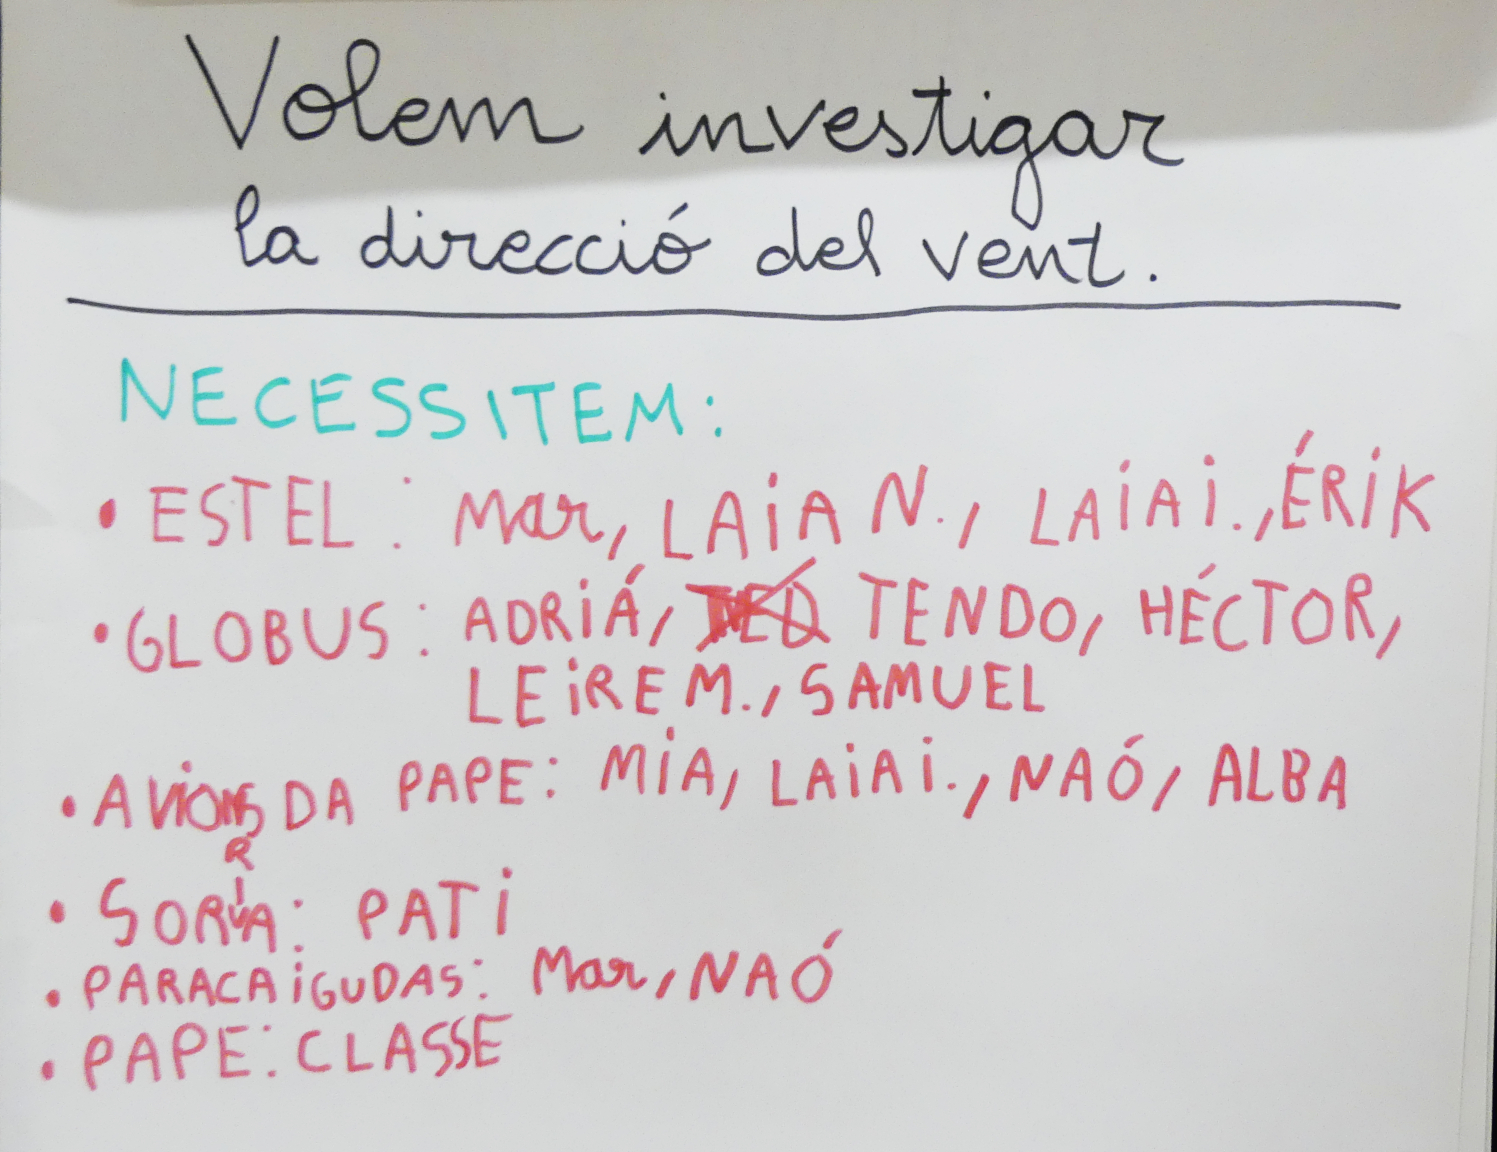 Volem investigar
la direcció del vent.
NECESSITEM:
• ESTEL: Mar, LAIA N., LAIA I., ÉRIK
• GLOBUS: ADRIÁ, TENDO, HÉCTOR,
LEIRE M., SAMUEL
• AVIONS DA PAPE: MIA, LAIA I., NAÓ, ALBA
• PATI
• PARACAIGUDAS: Mar, NAÓ
• PAPE: CLASSE